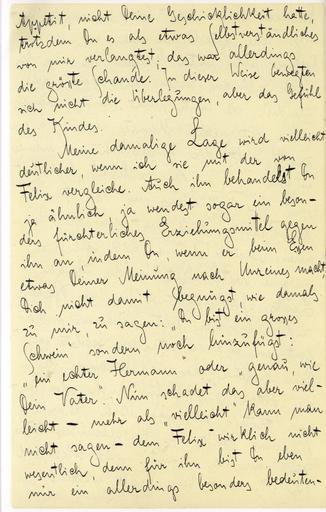 Appetit, nicht Deine Geschicklichkeit hatte,
trotzdem Du es als etwas Selbstverständliches
von mir verlangtest; das war allerdings
die größte Schande. In dieser Weise bewegten
sich nicht die Überlegungen, aber das Gefühl
des Kindes.
Meine damalige Lage wird vielleicht
deutlicher, wenn ich sie mit der von
Felix vergleiche. Auch ihn behandelst Du
ja ähnlich, ja wendest sogar ein beson-
ders fürchterliches Erziehungsmittel gegen
ihn an, indem Du, wenn er beim Essen
etwas Deiner Meinung nach Unreines macht,
Dich nicht damit begnügst, wie damals
zu mir, zu sagen: „Du bist ein grosses
Schwein" sondern noch hinzufügst:
„ein echter Hermann" oder „genau, wie
Dein Vater". Nun schadet das aber viel-
leicht – mehr als „vielleicht" kann man
nicht sagen – dem Felix wirklich nicht
wesentlich, denn für ihn bist Du eben
nur ein allerdings besonders bedeuten-